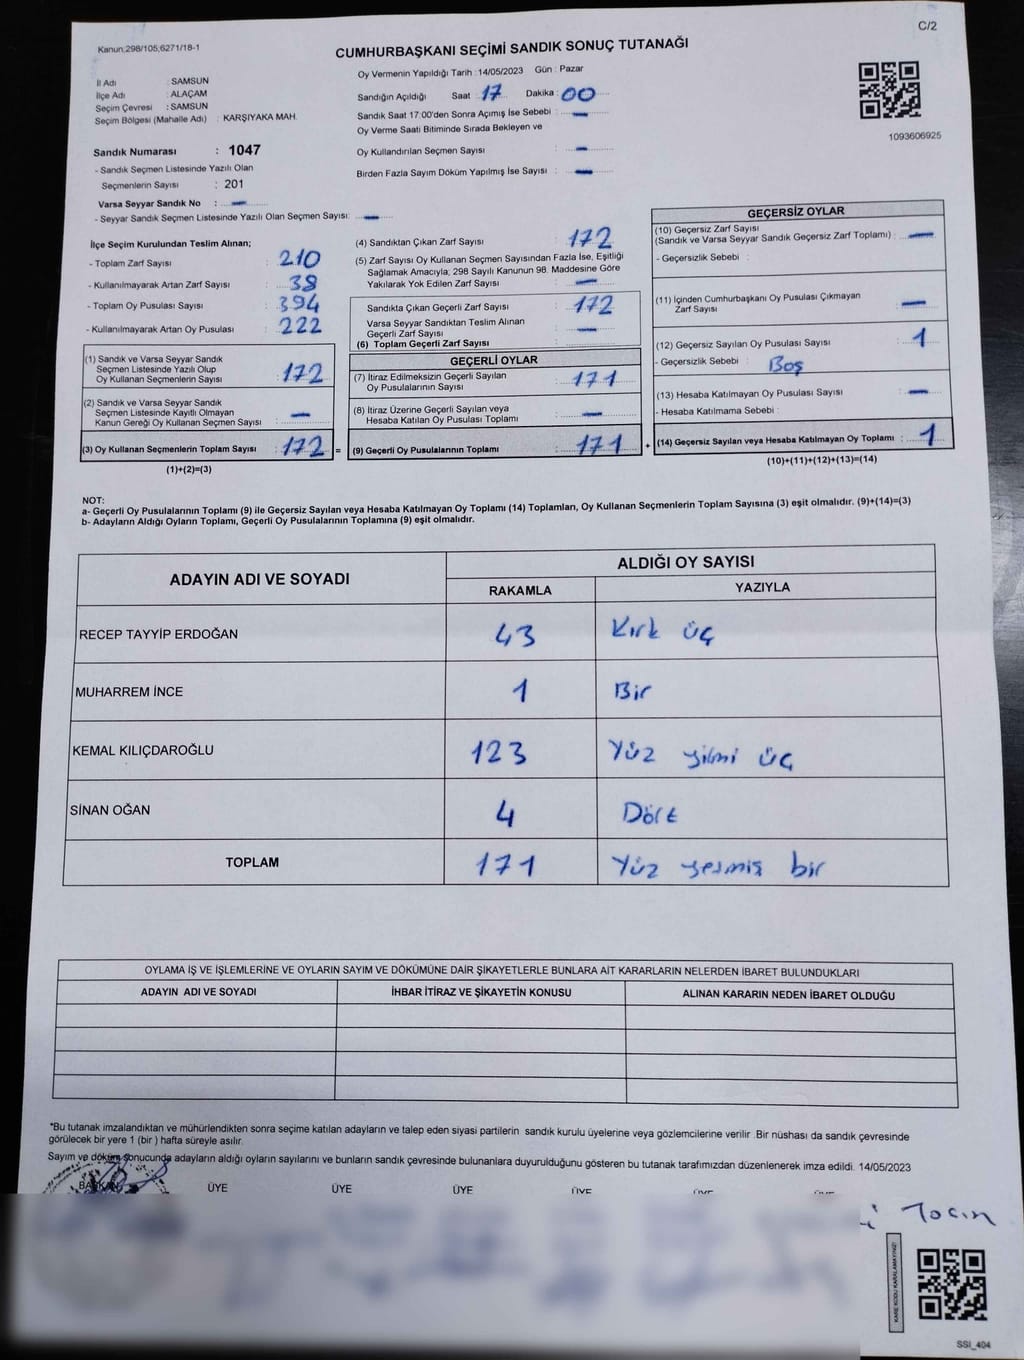 C/2
Kanun;298/105;6271/18-1
CUMHURBAŞKANI SEÇİMİ SANDIK SONUÇ TUTANAĞI
İl Adı : SAMSUN
İlçe Adı : ALAÇAM
Seçim Çevresi : SAMSUN
Seçim Bölgesi (Mahalle Adı) : KARŞIYAKA MAH.
Sandık Numarası : 1047
- Sandık Seçmen Listesinde Yazılı Olan
Seçmenlerin Sayısı : 201
Varsa Seyyar Sandık No : —
- Seyyar Sandık Seçmen Listesinde Yazılı Olan Seçmen Sayısı: —
Oy Vermenin Yapıldığı Tarih :14/05/2023 Gün : Pazar
Sandığın Açıldığı Saat 17 Dakika : 00
Sandık Saat 17:00'den Sonra Açımış İse Sebebi : —
Oy Verme Saati Bitiminde Sırada Bekleyen ve
Oy Kullandırılan Seçmen Sayısı : —
Birden Fazla Sayım Döküm Yapılmış İse Sayısı : —
1093606925
İlçe Seçim Kurulundan Teslim Alınan;
- Toplam Zarf Sayısı : 210
- Kullanılmayarak Artan Zarf Sayısı : 38
- Toplam Oy Pusulası Sayısı : 394
- Kullanılmayarak Artan Oy Pusulası : 222
(1) Sandık ve Varsa Seyyar Sandık
Seçmen Listesinde Yazılı Olup
Oy Kullanan Seçmenlerin Sayısı : 172
(2) Sandık ve Varsa Seyyar Sandık
Seçmen Listesinde Kayıtlı Olmayan
Kanun Gereği Oy Kullanan Seçmen Sayısı : —
(3) Oy Kullanan Seçmenlerin Toplam Sayısı : 172 =
(1)+(2)=(3)
(4) Sandıktan Çıkan Zarf Sayısı : 172
(5) Zarf Sayısı Oy Kullanan Seçmen Sayısından Fazla İse, Eşitliği
Sağlamak Amacıyla; 298 Sayılı Kanunun 98. Maddesine Göre
Yakılarak Yok Edilen Zarf Sayısı : —
Sandıkta Çıkan Geçerli Zarf Sayısı : 172
Varsa Seyyar Sandıktan Teslim Alınan
Geçerli Zarf Sayısı : —
(6) Toplam Geçerli Zarf Sayısı :
GEÇERLİ OYLAR
(7) İtiraz Edilmeksizin Geçerli Sayılan
Oy Pusulalarının Sayısı : 171
(8) İtiraz Üzerine Geçerli Sayılan veya
Hesaba Katılan Oy Pusulası Toplamı : —
(9) Geçerli Oy Pusulalarının Toplamı : 171 +
GEÇERSİZ OYLAR
(10) Geçersiz Zarf Sayısı
(Sandık ve Varsa Seyyar Sandık Geçersiz Zarf Toplamı) : —
- Geçersizlik Sebebi :
(11) İçinden Cumhurbaşkanı Oy Pusulası Çıkmayan
Zarf Sayısı : —
(12) Geçersiz Sayılan Oy Pusulası Sayısı : 1
- Geçersizlik Sebebi : Boş
(13) Hesaba Katılmayan Oy Pusulası Sayısı : —
- Hesaba Katılmama Sebebi :
(14) Geçersiz Sayılan veya Hesaba Katılmayan Oy Toplamı : 1
(10)+(11)+(12)+(13)=(14)
NOT:
a- Geçerli Oy Pusulalarının Toplamı (9) ile Geçersiz Sayılan veya Hesaba Katılmayan Oy Toplamı (14) Toplamları, Oy Kullanan Seçmenlerin Toplam Sayısına (3) eşit olmalıdır. (9)+(14)=(3)
b- Adayların Aldığı Oyların Toplamı, Geçerli Oy Pusulalarının Toplamına (9) eşit olmalıdır.
ADAYIN ADI VE SOYADI ALDIĞI OY SAYISI
RAKAMLA YAZIYLA
RECEP TAYYİP ERDOĞAN 43 Kırk üç
MUHARREM İNCE 1 Bir
KEMAL KILIÇDAROĞLU 123 Yüz yirmi üç
SİNAN OĞAN 4 Dört
TOPLAM 171 Yüz yetmiş bir
OYLAMA İŞ VE İŞLEMLERİNE VE OYLARIN SAYIM VE DÖKÜMÜNE DAİR ŞİKAYETLERLE BUNLARA AİT KARARLARIN NELERDEN İBARET BULUNDUKLARI
ADAYIN ADI VE SOYADI İHBAR İTİRAZ VE ŞİKAYETİN KONUSU ALINAN KARARIN NEDEN İBARET OLDUĞU
*Bu tutanak imzalandıktan ve mühürlendikten sonra seçime katılan adayların ve talep eden siyasi partilerin sandık kurulu üyelerine veya gözlemcilerine verilir .Bir nüshası da sandık çevresinde
görülecek bir yere 1 (bir ) hafta süreyle asılır.
Sayım ve döküm sonucunda adayların aldığı oyların sayılarını ve bunların sandık çevresinde bulunanlara duyurulduğunu gösteren bu tutanak tarafımızdan düzenlenerek imza edildi. 14/05/2023
BAŞKAN ÜYE ÜYE ÜYE ÜYE ÜYE ÜYE
KARE KODU KARALAMAYINIZ!
SSİ_404